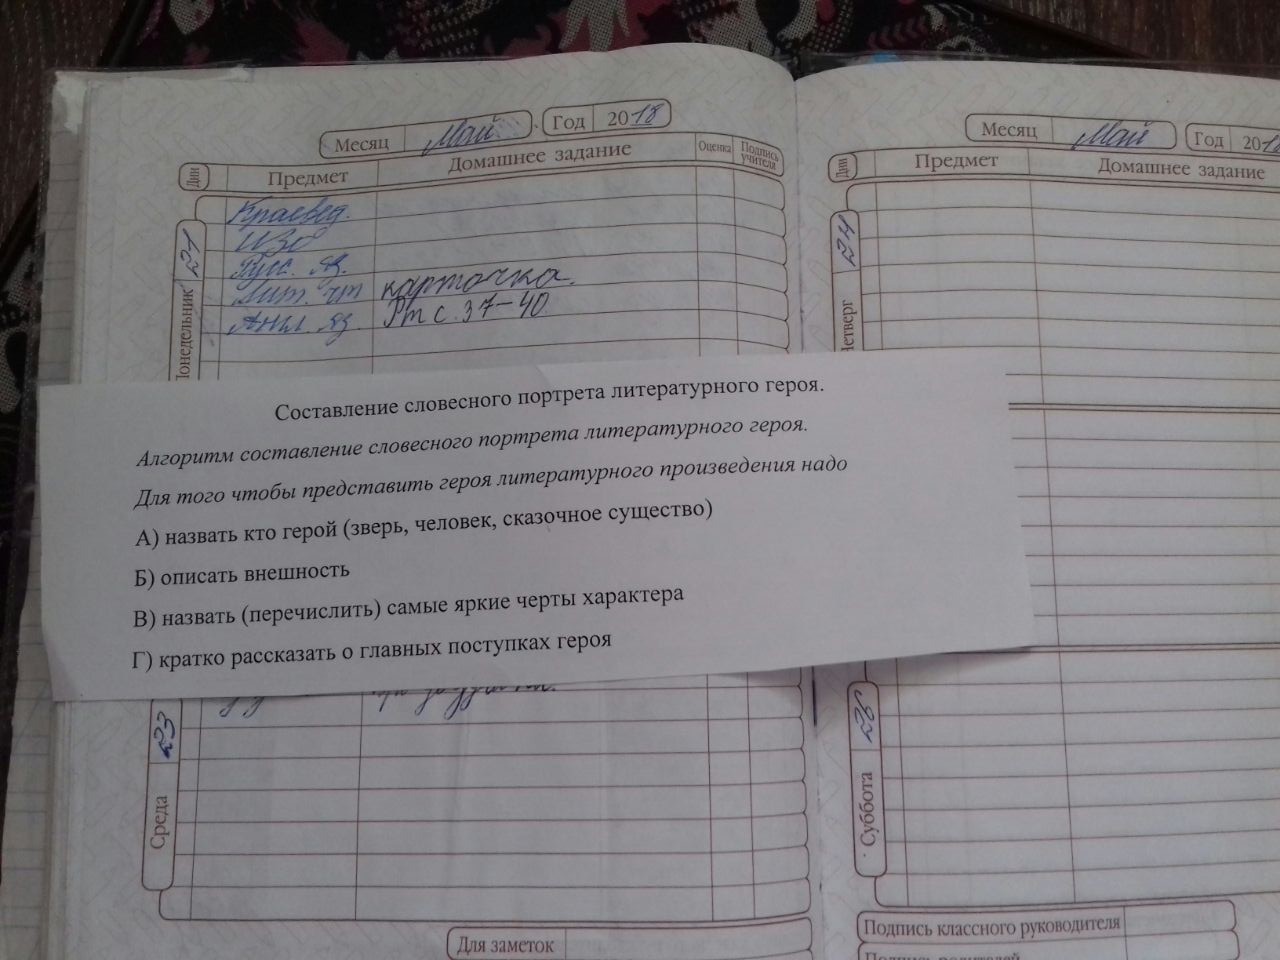 Месяц Май Год 2018
Дни Предмет Домашнее задание Оценка Подпись учителя
Понедельник 21
Краевед.
ИЗО
Русс. яз.
Лит. чт карточка.
Англ. яз Рт с. 37-40.
Составление словесного портрета литературного героя.
Алгоритм составление словесного портрета литературного героя.
Для того чтобы представить героя литературного произведения надо
А) назвать кто герой (зверь, человек, сказочное существо)
Б) описать внешность
В) назвать (перечислить) самые яркие черты характера
Г) кратко рассказать о главных поступках героя
Среда 23
Для заметок
Месяц Май Год 201
Дни Предмет Домашнее задание
Четверг 24
Суббота 26
Подпись классного руководителя
Подпись родителей